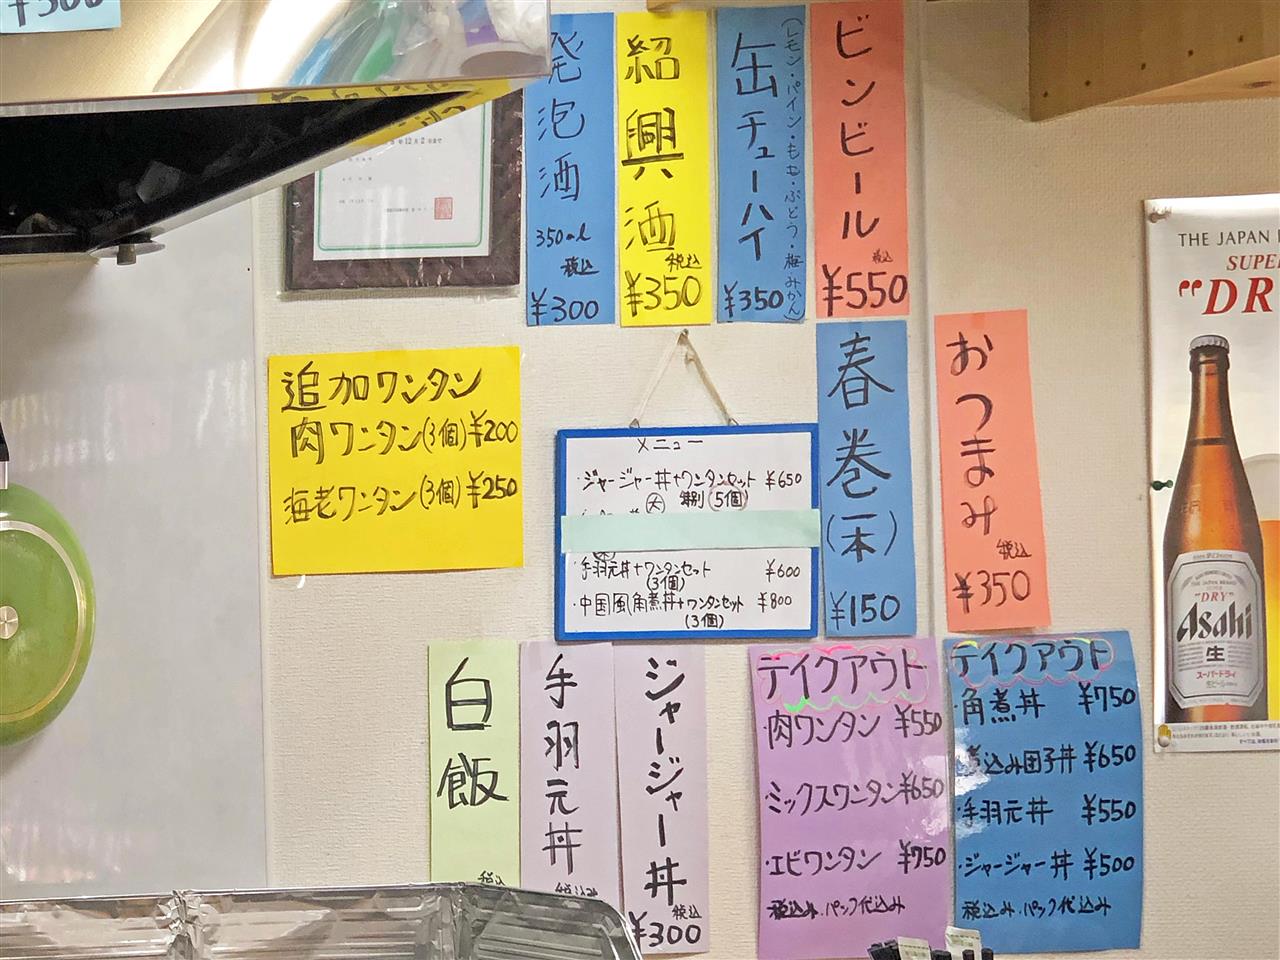 ¥300
発泡酒
350ml
税込
¥300
紹興酒
税込
¥350
缶チューハイ
(レモン・パイン・もも・ぶどう・梅・みかん)
¥350
ビンビール
税込
¥550
追加ワンタン
肉ワンタン(3個)¥200
海老ワンタン(3個)¥250
メニュー
・ジャージャー丼+ワンタンセット ¥650
(5個)
手羽元丼+ワンタンセット ¥600
(3個)
・中国風角煮丼+ワンタンセット ¥800
(3個)
春巻(一本)
¥150
おつまみ
税込
¥350
THE JAPAN
SUPER
"DR
THE JAPAN BEER
"DRY"
Asahi
生
スーパードライ
白飯
税込
手羽元丼
税込み
ジャージャー丼
税込
¥300
テイクアウト
・肉ワンタン ¥550
・ミックスワンタン¥650
・エビワンタン ¥750
税込み・パック代込み
テイクアウト
・角煮丼 ¥750
煮込み団子丼 ¥650
・手羽元丼 ¥550
・ジャージャー丼 ¥500
税込み・パック代込み